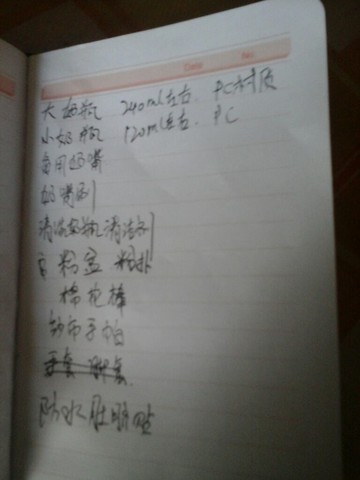 Date No.
大奶瓶 240ml左右. PC材质
小奶瓶 120ml左右. PC
备用奶嘴
奶嘴刷
清洁奶瓶清洁剂
粉盒 粉扑
棉花棒
纱布手帕
手套 脚套
防水肚脐贴